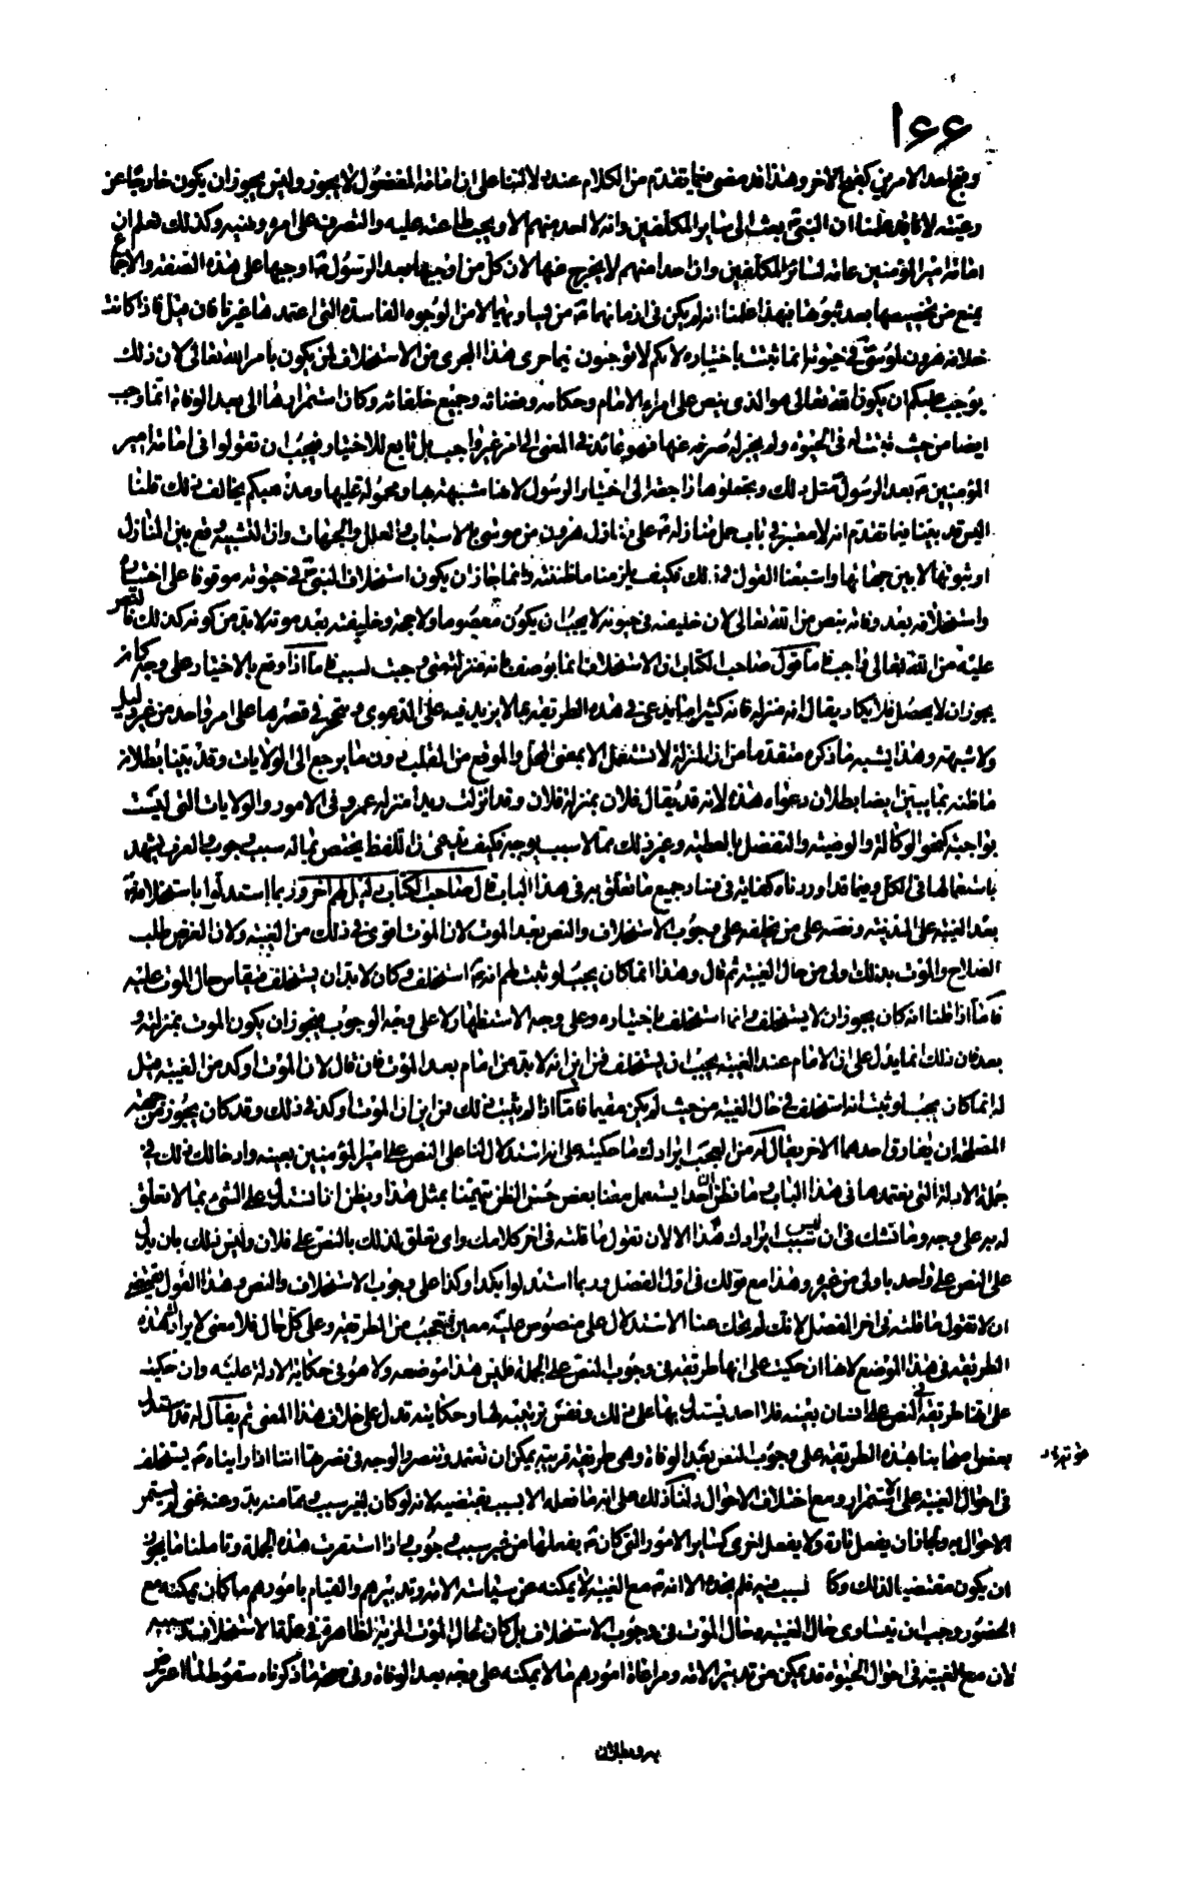 ١٦٦
وقبح احد الامرين كقبح الاخر وهذا قد مضى فيما تقدم من الكلام عند دلالتنا على ان امامة المفضول لا يجوز وليس يجوز ان يكون خارجا عن
رعيته لانا قد علمنا ان النبي ص بعث الى سائر المكلفين وانه لا احد منهم الا ويجب طاعته عليه والتصرف على امره ونهيه وكذلك نعلم ان
امامة امير المؤمنين عامة لسائر المكلفين وان احدا منهم لا يخرج عنها لان كل من اوجبها بعد الرسول ص اوجبها على هذه الصفة والاجماع
يمنع من تخصيصها بعد ثبوتها فبهذا علمنا انه لم يكن في ازمانهما من يساويهما لا من الوجوه الفاسدة التي اعتمدها غيرنا فان قيل فاذا كانت
خلافة هرون لموسى في حيوته انما ثبتت باختياره لانكم لا توجبون فيما جرى هذا المجرى من الاستخلاف ان يكون بامر الله تعالى لان ذلك
يوجب عليكم ان يكون الله تعالى هو الذي ينص على امراء الامام وحكامه وقضاته وجميع خلفائه وكان استمرارها الى بعد الوفاة انما وجب
ايضا من حيث ثبتت له في الحيوة ولم يجز له صرفه عنها فهو عائد في المعنى الى امر غير واجب بل تابع للاختيار فيجب ان تقولوا في امامة امير
المؤمنين ع بعد الرسول ص مثل ذلك وتجعلوها راجعة الى اختيار الرسول لانها مشبهة بها ومحمولة عليها ومذهبكم يخالف ذلك قلنا
ليس قد بينا فيما تقدم انه لا معتبر في باب حمل منازله ع على منازل هرون من موسى بالاسباب والعلل والجهات وان التشبيه وقع بين المنازل
او ثبوتها لا بين جهاتها واستبعنا القول في ذلك فكيف يلزمنا ما ظننته وانما جاز ان يكون استخلاف النبي ص في حيوته موقوفا على اختياره
واستخلافه بعد وفاته بنص من الله تعالى لان خليفته في حيوته لا يجب ان يكون معصوما ولا حجة وخليفته بعد موته لا بد من كونه كذلك فالنص
عليه من الله تعالى واجب فاما قول صاحب الكتاب ان الاستخلاف انما يوصف بانه منزلة متى وجبت لسبب فاما اذا وقع بالاختيار وعلى وجه كان
يجوز ان لا يحصل فلا يكاد يقال انه منزلة فانه كثيرا ما يدعى في هذه الطريقة بما لا يزيد فيه على الدعوى ويتحجر في قصرها على امر واحد من غير دليل
ولا شبهة وهذا يشبه ما ذكره متقدما من ان المنزلة لا تستعمل الا بمعنى المحل والموقع من القلب دون ما يرجع الى الولايات وقد بينا بطلان
ما ظنه بما يبين ايضا بطلان دعواه هذه لانه قد يقال فلان بمنزلة فلان وقد انزلت زيدا منزلة عمرو في الامور والولايات التي ليست
بواجبة كنحو الوكالة والوصية والتفضل بالعطية وغير ذلك مما لا سبب له وجبه فكيف يدعى ان اللفظ يختص بما له سبب وجوب والعرف يشهد
باستعمالها في الكل وفيما قد اوردناه كفاية في هذا وجميع ما تعلق به في هذا الباب قال صاحب الكتاب دليل لهم اخر وربما استدلوا باستخلافه
عند الغيبة على المدينة ونصه على من يخلفه على وجوب الاستخلاف والنص بعد الموت لان الموت اقوى في ذلك من الغيبة ولان الغرض طلب
الصلاح والموت بذلك اولى من حال الغيبة ثم قال وهذا انما كان يجب لو ثبت لهم انه ص استخلف وكان لا بد ان يستخلف فيقاس حال الموت عليه
فاما اذا قلنا انه كان يجوز ان لا يستخلف وانما استخلف باختياره وعلى وجه الاستظهار لا على وجه الوجوب فيجوز ان يكون الموت بمنزلته و
بعد فان ذلك انما يدل على ان الامام عند الغيبة يجب ان يستخلف فمن اين انه لا بد من امام بعد الموت فان قال لان الموت اوكد من الغيبة قيل
له انما كان يجب لو ثبت انه استخلف في حال الغيبة من حيث لم يكن مقيما فاما اذا لم يثبت ذلك فمن اين ان الموت اوكد في ذلك وقد كان يجوز من جهة
المصلحة ان يفارق احدهما الاخر يقال له من العجب ايرادك ما حكيته على انه استدلال لنا على النص على امير المؤمنين بعينه وادخالك ذلك في
جملة الادلة التي نعتمدها في هذا الباب وما نظن ان احدا يستعمل معنا بعض حسن الظن يتهمنا بمثل هذا ويظن اننا نستدل على الشيء بما لا تعلق
له به على وجه وما نشك في ان ليس سبب ايرادك هذا الا لان تقول ما قلته في اخر كلامك واي تعلق لذلك بالنص على فلان وليس ذلك بان يدل
على النص على واحد باولى من غيره وهذا مع قولك في اول الفصل ربما استدلوا بكذا وكذا على وجوب الاستخلاف والنص وهذا القول يقتضي
ان لا تقول ما قلته في اخر الفصل لانك لم تحك عنا الاستدلال على منصوص عليه معين فتعجب من الطريقة وعلى كل حال فلا معنى لايراد هذه
الطريقة في هذا الموضع لانها ان حكيت على انها طريقة في وجوب النص على الجملة فليس هذا موضعه ولا هو في حكاية الادلة عليه وان حكيته
على انها طريقة في النص على انسان بعينه فلا احد يستدل بها على ذلك ونفس ترتيبه لها وحكايته قد دل على خلاف هذا المعنى ثم يقال له قد استدل
بعض اصحابنا بهذه الطريقة على وجوب النص بعد الوفاة وهي طريقة قريبة يمكن ان تعتمد وتنصر والوجه في نصرتها اننا اذا رايناه ع يستخلف
في احوال الغيبة على الاستمرار ومع اختلاف الاحوال دلنا ذلك على انه ما فعله الا لسبب يقتضيه لانه لو كان لغير سبب وعما منه بد وعنه غنى لم يستمر
الاحوال به ولجاز ان يفعل تارة ولا يفعل اخرى كسائر الامور التي كان ع يفعلها من غير سبب وجوب واذا استقرت هذه الجملة وتاملنا ما يجوز
ان يكون مقتضيا لذلك وكا لسبب فيه فلم نجده الا انه ع مع الغيبة لا يمكنه من سياسة الامة وتدبيرهم والقيام بامورهم ما كان يمكنه مع
الحضور وجب ان يتساوى حال الغيبة وحال الموت في وجوب الاستخلاف بل كان لحال الموت المزية الظاهرة في علة الاستخلاف وسببه
لان مع الغيبة في احوال الحيوة قد يمكن من تدبير الامة ومراعاة امورهم ما لا يمكنه على وجه بعد الوفاة وفي صحة ما ذكرناه سقوط لما اعترض
به وبطلان